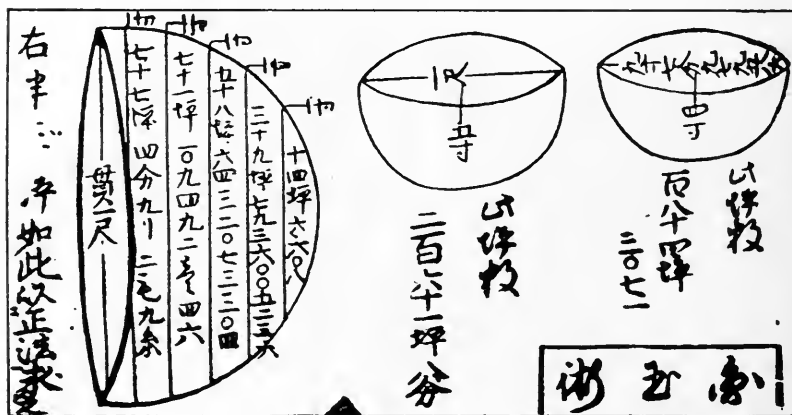 玉術
九寸七分九七九五八
四寸
此坪数
百八十四坪
三〇七一
一尺
五寸
此坪数
二百六十一坪
一寸
一寸
一寸
一寸
一寸
十四坪六六〇八
三十九坪七九三六〇〇五二三六
五十八坪六四三二〇七三三〇四
七十一坪一〇九四九二四六
七十七坪四分九リ二毛九糸
貫一尺
右半 如此以正法求